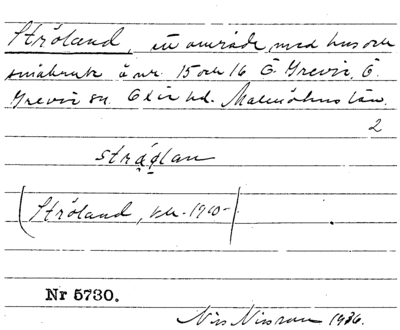 Ströland, ett område med hus och
småbruk å nr. 15 och 16 Ö. Grevie, Ö.
Grevie sn. Oxie hd. Malmöhus län.
2
(Ströland, 1910-)
Nr 5730.
Nils Nilsson 1936.